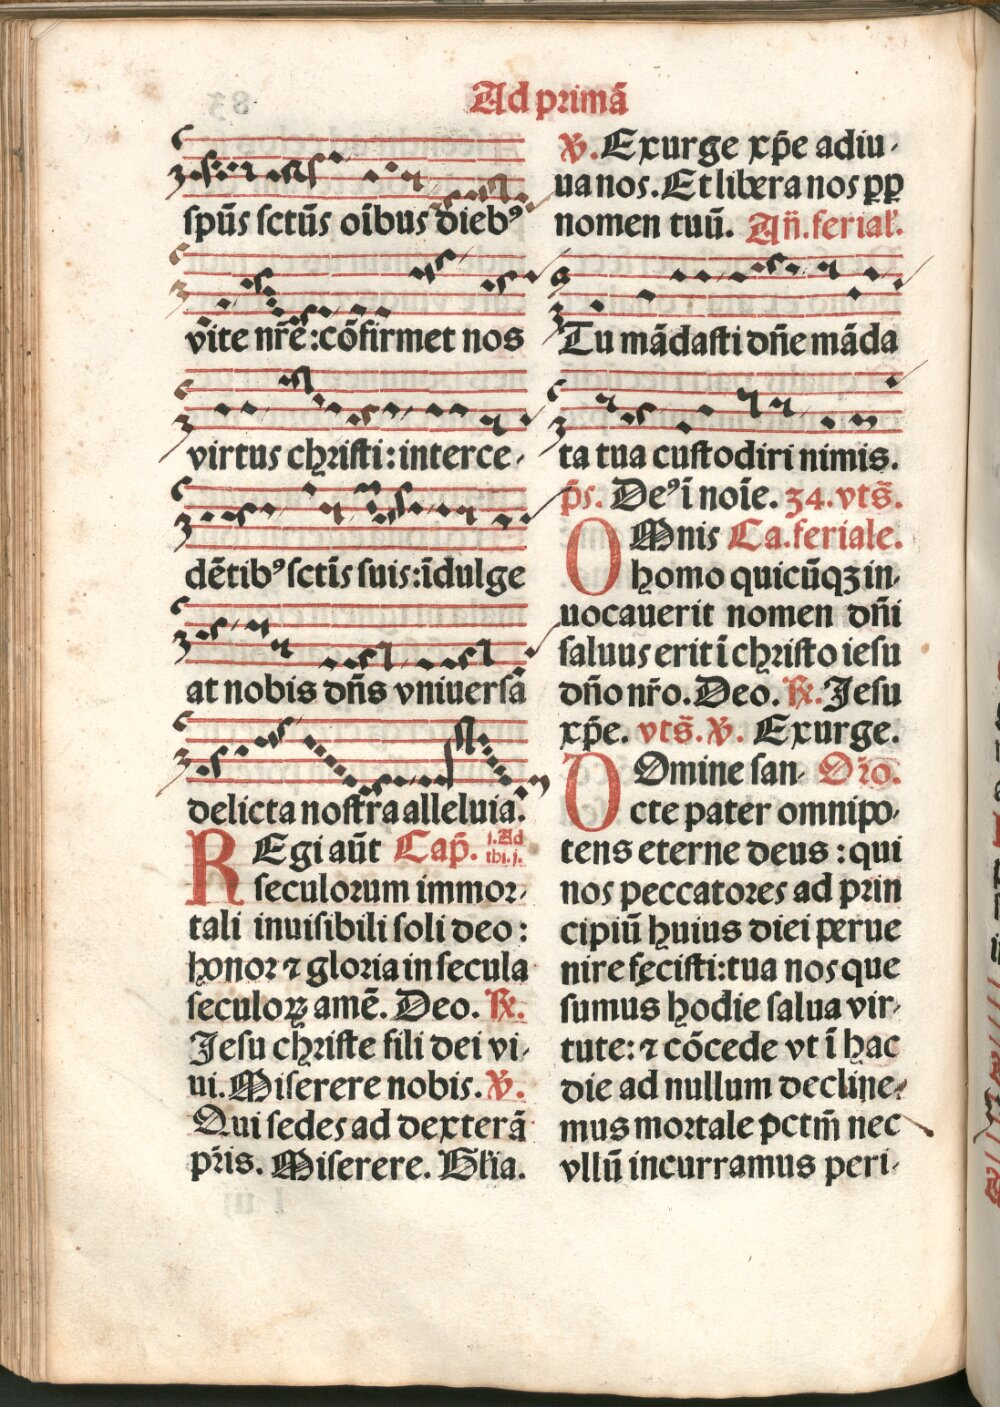 Ad primā
spūs sctūs oībus diebꝰ
vite nr̄e:cōfirmet nos
virtus christi:interce-
dētibꝰ sctīs suis:īdulge
at nobis dn̄s vniuersa
delicta nostra alleluia.
REgi aūt Cap̄. j.Ad
thi.j.
seculorum immor-
tali inuisibili soli deo:
honor ⁊ gloria in secula
seculoꝝ amē. Deo. ℟.
Jesu christe fili dei vi-
ui. Miserere nobis. ℣.
Qui sedes ad dexterā
pr̄is. Miserere. Gl̄ia.
℣. Exurge xp̄e adiu-
ua nos. Et libera nos ꝓꝑ
nomen tuū. An̄.ferial̄.
Tu mādasti dn̄e māda
ta tua custodiri nimis.
p̄s. Deꝰ ī noīe. 34. vts̄.
OMnis Ca.feriale.
homo quicūqꝫ in-
uocauerit nomen dn̄i
saluus erit ī christo iesu
dn̄o nr̄o. Deo. ℟. Jesu
xp̄e. vts̄. ℣. Exurge.
DOmine san- Or̄o.
cte pater omnipo-
tens eterne deus : qui
nos peccatores ad prin
cipiū huius diei perue
nire fecisti:tua nos que
sumus hodie salua vir-
tute: ⁊ cōcede vt ī hac
die ad nullum decline-
mus mortale pctm̄ nec
vllū incurramus peri-